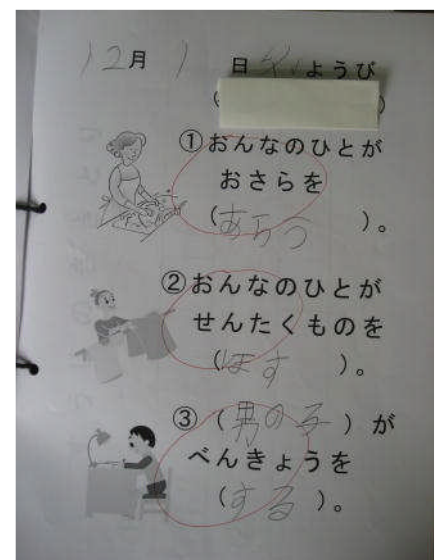 12月1日 ようび
①おんなのひとが
おさらを
(あらう)。
②おんなのひとが
せんたくものを
(ほす)。
③(男の子)が
べんきょうを
(する)。